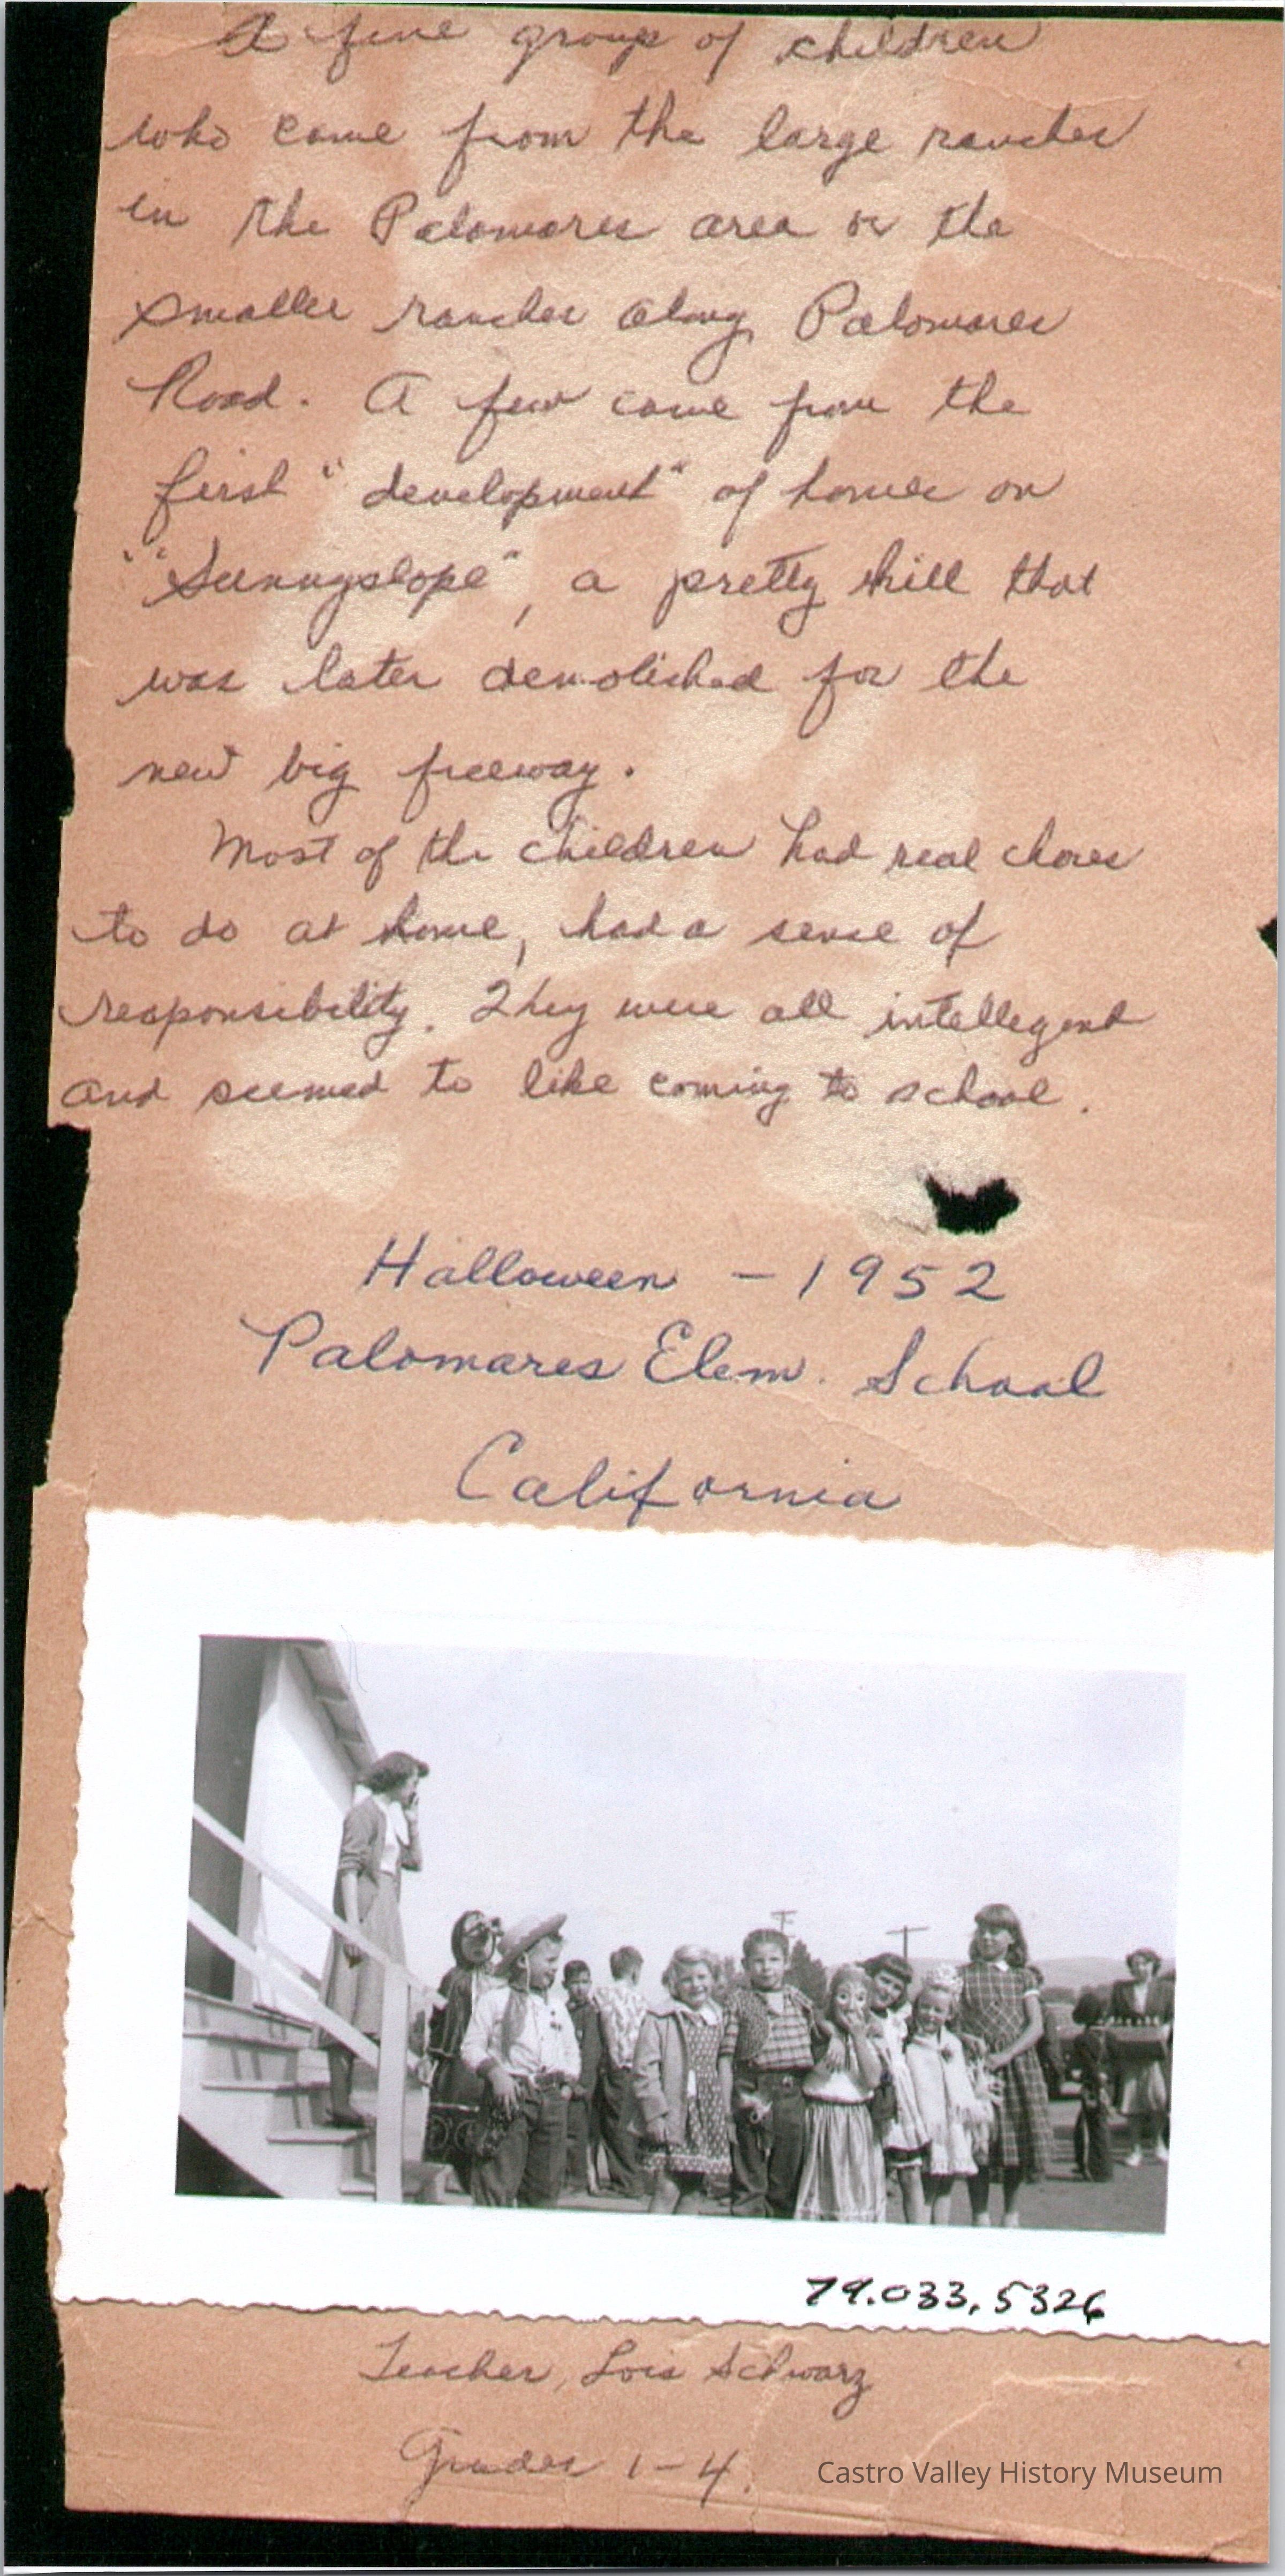 A fine group of children
who came from the large ranches
in the Palomares area or the
smaller ranches along Palomares
Road. A few came from the
first "development" of homes on
"Sunnyslope", a pretty hill that
was later demolished for the
new big freeway.
Most of the children had real chores
to do at home, had a sense of
responsibility. They were all intellegent
and seemed to like coming to school.
Halloween - 1952
Palomares Elem. School
California
79.033.5326
Teacher, Lois Schwarz
Grades 1-4.
Castro Valley History Museum